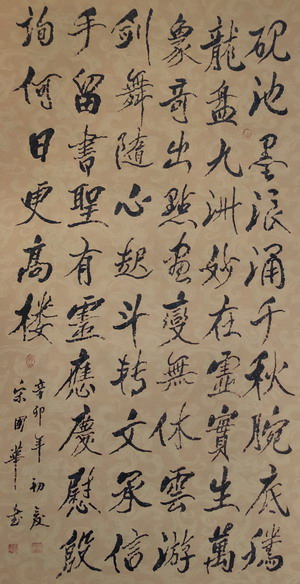 硯池墨浪涌千秋腕底騰
龍盤九洲妙在虛實生萬
象奇出點畫變無休雲游
劍舞隨心起斗轉文承信
手留書聖有靈應慶慰殷
詢何日更高樓
辛卯年初夏
宋國華書